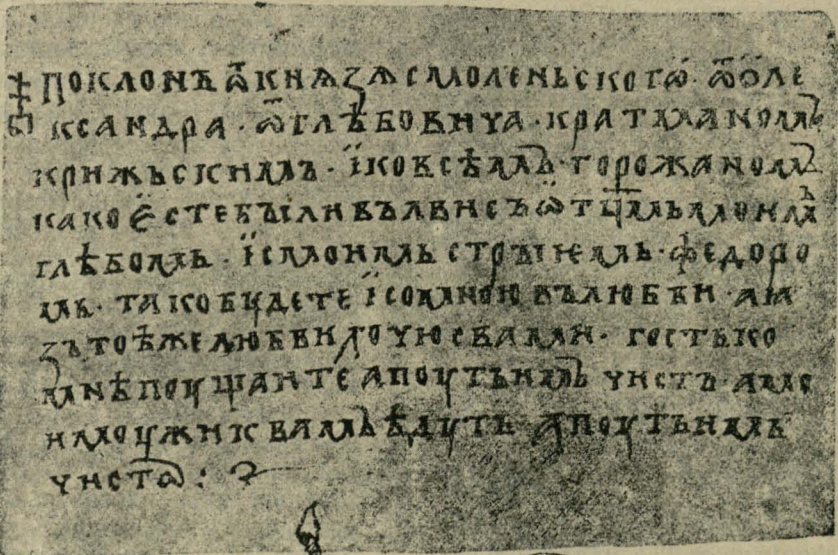 ‡ поклонъ ѿ кнѧзѧ смоленьскогѡ · ѿ ѡле
ксандра · ѿ глѣбовича · к ратманомъ
к рижьскимъ · ї ко всѣмъ · горожаномъ
како есте были въ лвис ъ ѿтцмь моимъ
глѣбомь · ї с моимь стрыемь · федоро
мь · тако будете ї со мною въ любви · а ꙗ
зъ тоѣ же любви хочю с вами · гость ко
мнѣ пущаите а поуть имъ чистъ · а мо
и моужи к вамъ ѣдуть а поуть имъ
чистъ :